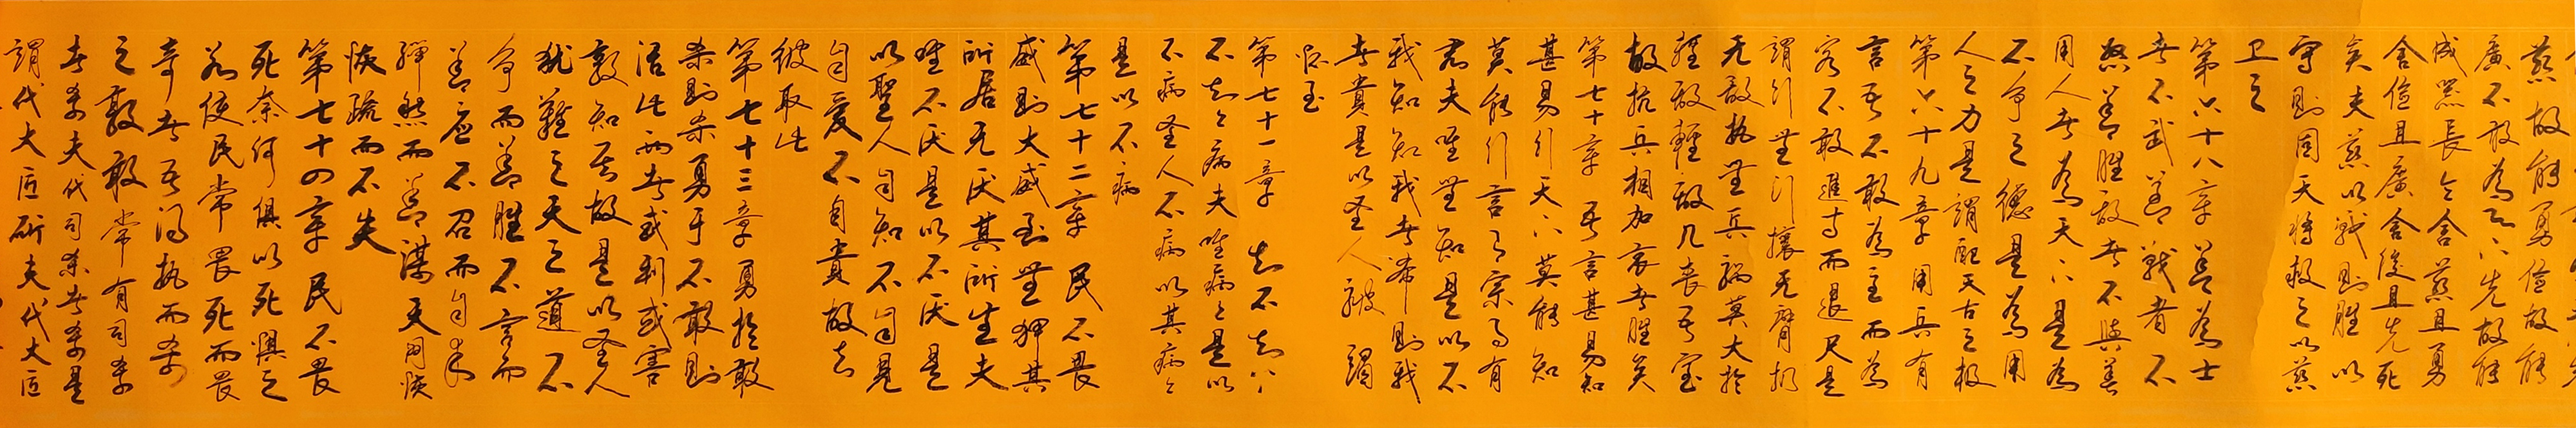 慈故能勇俭故能
廣不敢為天下先故能
成器長今舍慈且勇
舍俭且廣舍後且先死
矣夫慈以戰則勝以
守則固天将救之以慈
卫之
第六十八章 善為士
者不武善戰者不
怒善胜敌者不與善
用人者為天下是為
不争之德是為用
人之力是謂配天古之极
第六十九章 用兵有
言吾不敢為主而為
客不敢進寸而退尺是
謂行無行攘无臂扔
无敵执無兵禍莫大於
輕敌輕敌几丧吾宝
故抗兵相加哀者胜矣
第七十章 吾言甚易知
甚易行天下莫能知
莫能行言有宗事有
君夫唯無知是以不
我知知我者希則我
者貴是以圣人被褐
怀玉
第七十一章 知不知上
不知々病夫唯病々是以
不病圣人不病以其病々
是以不病
第七十二章 民不畏
威則大威至無狎其
所居无厌其所生夫
唯不厌是以不厌是
以聖人自知不自見
自愛不自貴故去
彼取此
第七十三章 勇於敢
杀則杀勇于不敢則
活此两者或利或害
敦知其故是以圣人
猶難之天之道不
争而善胜不言而
善应不召而自来
繟然而善謀天网恢
恢疏而不失
第七十四章 民不畏
死奈何俱以死惧之
若使民常畏死而畏
奇者吾得执而杀
之敦敢常有司杀
者杀夫代司杀者杀是
謂代大匠斫夫代大匠